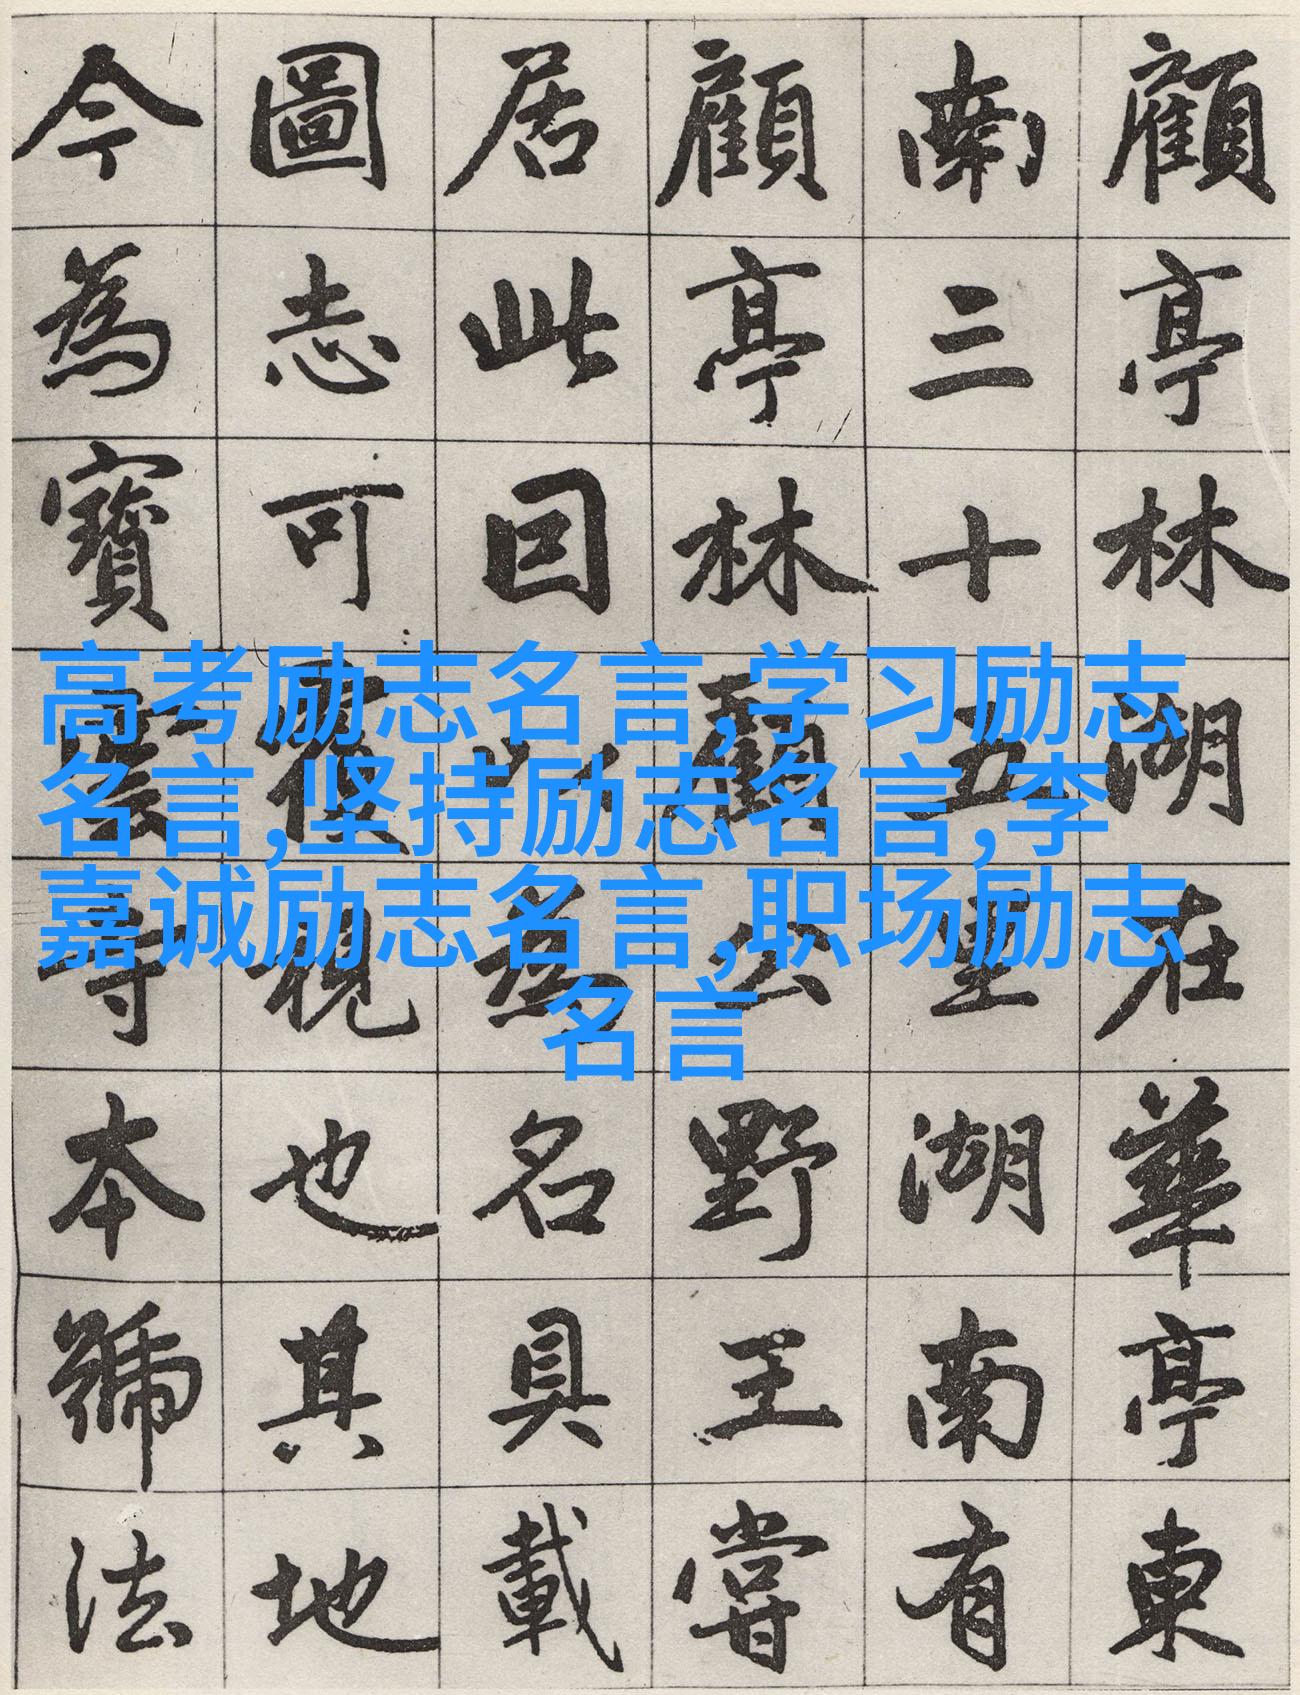 顧亭林湖在華亭東
南三十五里湖南有
顧亭林顧公野王嘗
居此囙以為名具載
圖志可覆視也其地
今為寶雲寺本號法
高考励志名言,学习励志
名言,坚持励志名言,李
嘉诚励志名言,职场励志
名言